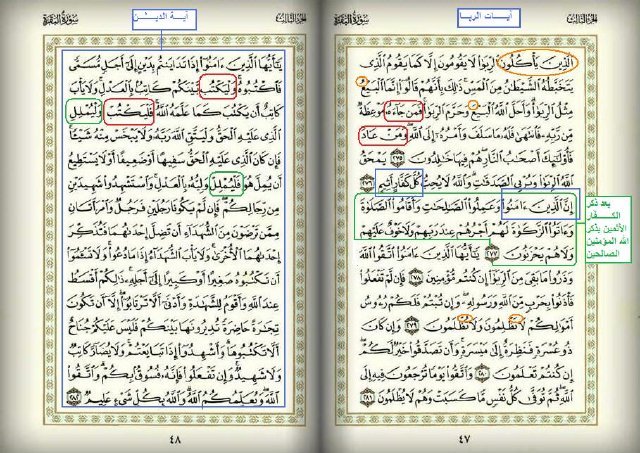 آيات الربا
سورة البقرة
الجزء الثالث
ٱلَّذِينَ يَأْكُلُونَ ٱلرِّبَوٰا۟ لَا يَقُومُونَ إِلَّا كَمَا يَقُومُ ٱلَّذِى
يَتَخَبَّطُهُ ٱلشَّيْطَٰنُ مِنَ ٱلْمَسِّ ذَٰلِكَ بِأَنَّهُمْ قَالُوٓا۟ إِنَّمَا ٱلْبَيْعُ
مِثْلُ ٱلرِّبَوٰا۟ وَأَحَلَّ ٱللَّهُ ٱلْبَيْعَ وَحَرَّمَ ٱلرِّبَوٰا۟ فَمَن جَآءَهُۥ مَوْعِظَةٌ
مِّن رَّبِّهِۦ فَٱنتَهَىٰ فَلَهُۥ مَا سَلَفَ وَأَمْرُهُۥٓ إِلَى ٱللَّهِ وَمَنْ عَادَ
فَأُو۟لَٰٓئِكَ أَصْحَٰبُ ٱلنَّارِ هُمْ فِيهَا خَٰلِدُونَ ٢٧٥ يَمْحَقُ
ٱللَّهُ ٱلرِّبَوٰا۟ وَيُرْبِى ٱلصَّدَقَٰتِ وَٱللَّهُ لَا يُحِبُّ كُلَّ كَفَّارٍ أَثِيمٍ ٢٧٦
إِنَّ ٱلَّذِينَ ءَامَنُوا۟ وَعَمِلُوا۟ ٱلصَّٰلِحَٰتِ وَأَقَامُوا۟ ٱلصَّلَوٰةَ
وَءَاتَوُا۟ ٱلزَّكَوٰةَ لَهُمْ أَجْرُهُمْ عِندَ رَبِّهِمْ وَلَا خَوْفٌ عَلَيْهِمْ
وَلَا هُمْ يَحْزَنُونَ ٢٧٧ يَٰٓأَيُّهَا ٱلَّذِينَ ءَامَنُوا۟ ٱتَّقُوا۟ ٱللَّهَ
وَذَرُوا۟ مَا بَقِىَ مِنَ ٱلرِّبَوٰٓا۟ إِن كُنتُم مُّؤْمِنِينَ ٢٧٨ فَإِن لَّمْ تَفْعَلُوا۟
فَأْذَنُوا۟ بِحَرْبٍ مِّنَ ٱللَّهِ وَرَسُولِهِۦ وَإِن تُبْتُمْ فَلَكُمْ رُءُوسُ
أَمْوَٰلِكُمْ لَا تَظْلِمُونَ وَلَا تُظْلَمُونَ ٢٧٩ وَإِن كَانَ
ذُو عُسْرَةٍ فَنَظِرَةٌ إِلَىٰ مَيْسَرَةٍ وَأَن تَصَدَّقُوا۟ خَيْرٌ لَّكُمْ
إِن كُنتُمْ تَعْلَمُونَ ٢٨٠ وَٱتَّقُوا۟ يَوْمًا تُرْجَعُونَ فِيهِ إِلَى
ٱللَّهِ ثُمَّ تُوَفَّىٰ كُلُّ نَفْسٍ مَّا كَسَبَتْ وَهُمْ لَا يُظْلَمُونَ ٢٨١
٤٧
بعد ذكر
الكـــفار
الأثمين يذكر
الله المؤمنين
الصالحين
آية الديْن
الجزء الثالث
سورة البقرة
يَٰٓأَيُّهَا ٱلَّذِينَ ءَامَنُوٓا۟ إِذَا تَدَايَنتُم بِدَيْنٍ إِلَىٰٓ أَجَلٍ مُّسَمًّى
فَٱكْتُبُوهُ وَلْيَكْتُب بَّيْنَكُمْ كَاتِبٌۢ بِٱلْعَدْلِ وَلَا يَأْبَ
كَاتِبٌ أَن يَكْتُبَ كَمَا عَلَّمَهُ ٱللَّهُ فَلْيَكْتُبْ وَلْيُمْلِلِ
ٱلَّذِى عَلَيْهِ ٱلْحَقُّ وَلْيَتَّقِ ٱللَّهَ رَبَّهُۥ وَلَا يَبْخَسْ مِنْهُ شَيْـًٔا
فَإِن كَانَ ٱلَّذِى عَلَيْهِ ٱلْحَقُّ سَفِيهًا أَوْ ضَعِيفًا أَوْ لَا يَسْتَطِيعُ
أَن يُمِلَّ هُوَ فَلْيُمْلِلْ وَلِيُّهُۥ بِٱلْعَدْلِ وَٱسْتَشْهِدُوا۟ شَهِيدَيْنِ
مِن رِّجَالِكُمْ فَإِن لَّمْ يَكُونَا رَجُلَيْنِ فَرَجُلٌ وَٱمْرَأَتَانِ
مِمَّن تَرْضَوْنَ مِنَ ٱلشُّهَدَآءِ أَن تَضِلَّ إِحْدَىٰهُمَا فَتُذَكِّرَ
إِحْدَىٰهُمَا ٱلْأُخْرَىٰ وَلَا يَأْبَ ٱلشُّهَدَآءُ إِذَا مَا دُعُوا۟ وَلَا تَسْـَٔمُوٓا۟
أَن تَكْتُبُوهُ صَغِيرًا أَوْ كَبِيرًا إِلَىٰٓ أَجَلِهِۦ ذَٰلِكُمْ أَقْسَطُ
عِندَ ٱللَّهِ وَأَقْوَمُ لِلشَّهَٰدَةِ وَأَدْنَىٰٓ أَلَّا تَرْتَابُوٓا۟ إِلَّآ أَن تَكُونَ
تِجَٰرَةً حَاضِرَةً تُدِيرُونَهَا بَيْنَكُمْ فَلَيْسَ عَلَيْكُمْ جُنَاحٌ
أَلَّا تَكْتُبُوهَا وَأَشْهِدُوٓا۟ إِذَا تَبَايَعْتُمْ وَلَا يُضَآرَّ كَاتِبٌ
وَلَا شَهِيدٌ وَإِن تَفْعَلُوا۟ فَإِنَّهُۥ فُسُوقٌۢ بِكُمْ وَٱتَّقُوا۟
ٱللَّهَ وَيُعَلِّمُكُمُ ٱللَّهُ وَٱللَّهُ بِكُلِّ شَىْءٍ عَلِيمٌ ٢٨٢
٤٨